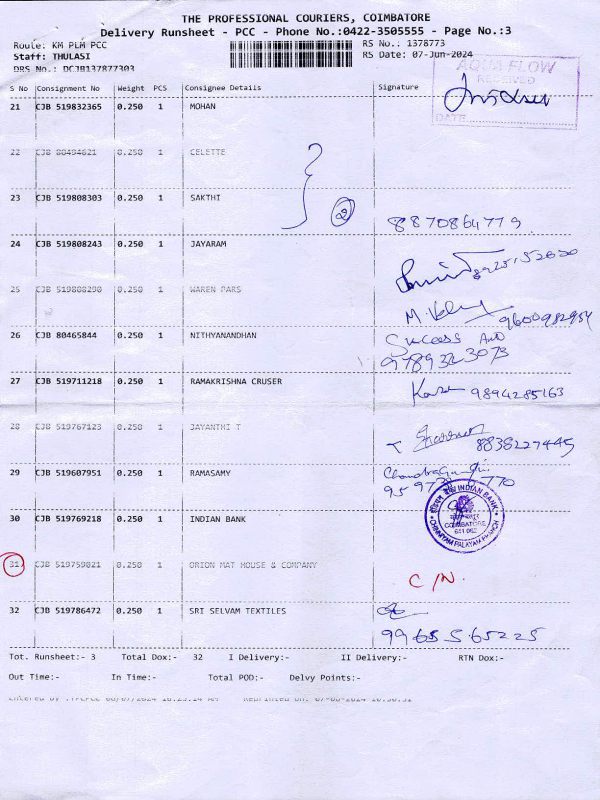 THE PROFESSIONAL COURIERS, COIMBATORE
Delivery Runsheet - PCC - Phone No.:0422-3505555 - Page No.:3
Route: KM PLM PCC RS No.: 1378773
Staff: THULASI RS Date: 07-Jun-2024
DRS No.: DCJB137877303
AQUA FLOW
RECEIVED
DATE
S No Consignment No Weight PCS Consignee Details Signature
21 CJB 519832365 0.250 1 MOHAN
22 CJB 80494621 0.250 1 CELETTE
23 CJB 519808303 0.250 1 SAKTHI
2
8870864779
24 CJB 519808243 0.250 1 JAYARAM
25 CJB 519808290 0.250 1 WAREN PARS
9600982954
26 CJB 80465844 0.250 1 NITHYANANDHAN
Success
27 CJB 519711218 0.250 1 RAMAKRISHNA CRUSER
9894285163
28 CJB 519767123 0.250 1 JAYANTHI T
8838227445
29 CJB 519607951 0.250 1 RAMASAMY
30 CJB 519769218 0.250 1 INDIAN BANK
INDIAN BANK
COIMBATORE
641 062
CHINNIYAM PALAYAM BRANCH
31 CJB 519759021 0.250 1 ORION MAT HOUSE & COMPANY
C/N.
32 CJB 519786472 0.250 1 SRI SELVAM TEXTILES
9965565225
Tot. Runsheet:- 3 Total Dox:- 32 I Delivery:- II Delivery:- RTN Dox:-
Out Time:- In Time:- Total POD:- Delvy Points:-